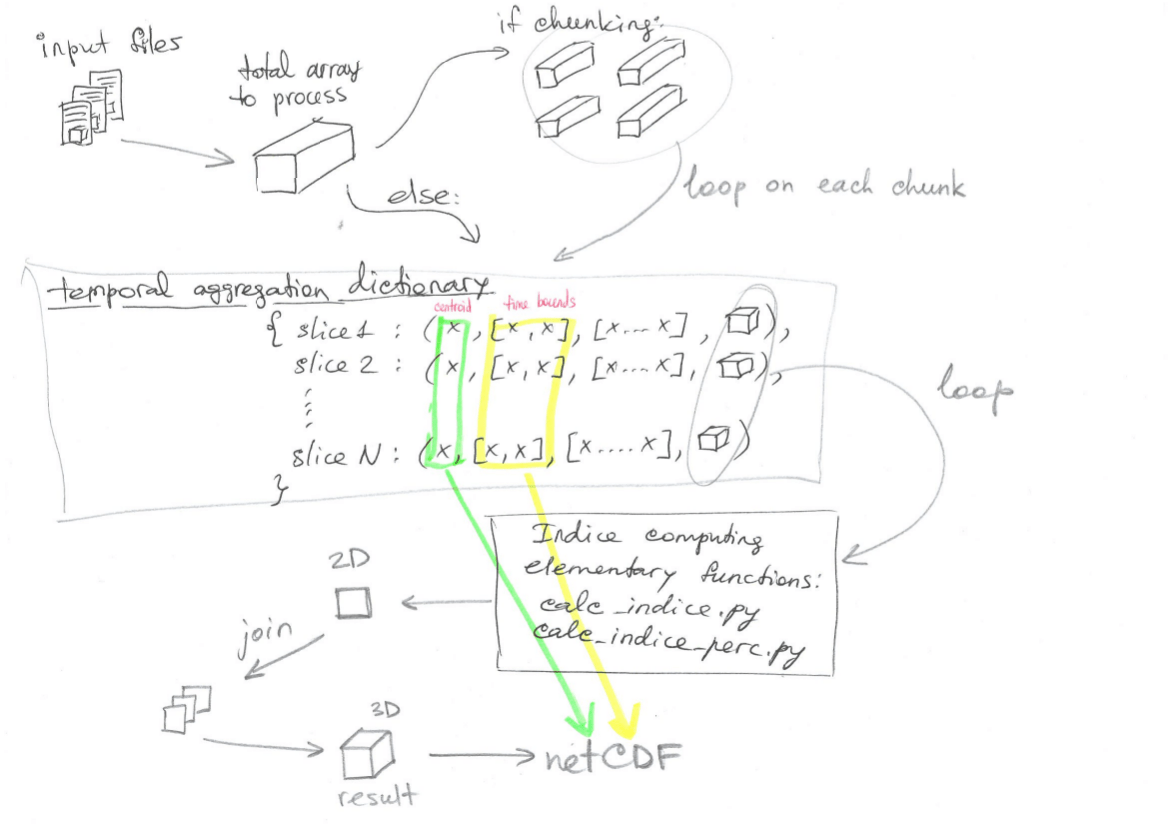 input files
total array
to process
if chunking:
else:
loop on each chunk
temporal aggregation dictionary
centroid
time bounds
{ slice 1 : (x, [x, x], [x...x], ),
slice 2 : (x, [x, x], [x....x], ),
slice N : (x, [x, x], [x....x], )
}
loop
Indice computing
elementary functions:
calc_indice.py
calc_indice_perc.py
2D
join
3D
result
netCDF